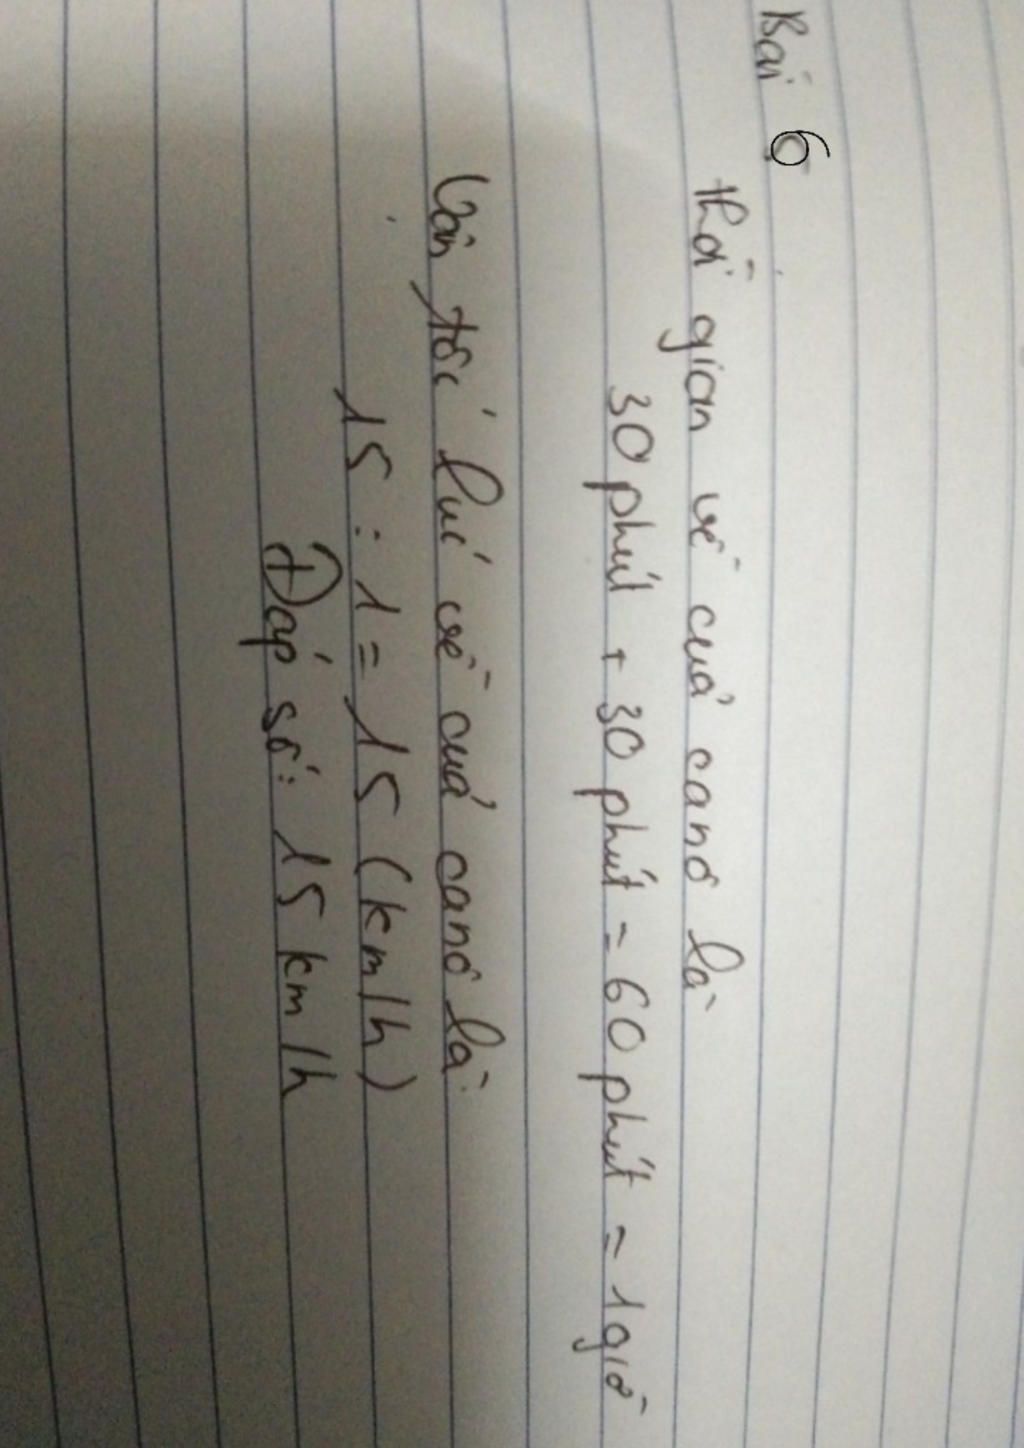 Bài 6
Thời gian về của canô là
30 phút + 30 phút = 60 phút = 1 giờ
Vận tốc lúc về của canô là
15 : 1 = 15 (km/h)
Đáp số: 15 km/h